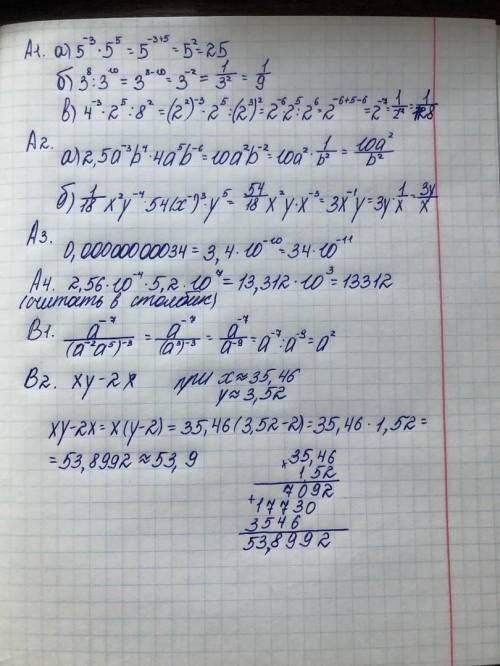 А1. а) 5⁻³ · 5⁵ = 5⁻³⁺⁵ = 5² = 25
б) 3⁸ : 3¹⁰ = 3⁸⁻¹⁰ = 3⁻² = 1/3² = 1/9
в) 4⁻³ · 2⁵ : 8² = (2²)⁻³ · 2⁵ : (2³)² = 2⁻⁶ · 2⁵ : 2⁶ = 2⁻⁶⁺⁵⁻⁶ = 2⁻⁷ = 1/2⁷ = 1/128
А2.
а) 2,5a⁻³b⁴ · 4a⁵b⁻⁶ = 10a²b⁻² = 10a² · 1/b² = 10a²/b²
б) 1/18 x²y⁻⁴ · 54(x⁻¹)³ · y⁵ = 54/18 x²y · x⁻³ = 3x⁻¹y = 3y · 1/x = 3y/x
А3.
0,00000000034 = 3,4 · 10⁻¹⁰ = 34 · 10⁻¹¹
А4. 2,56 · 10⁻⁴ · 5,2 · 10⁷ = 13,312 · 10³ = 13312
(считать в столбик)
В1. a⁻⁷/(a⁻²a⁵)⁻³ = a⁻⁷/(a³)⁻³ = a⁻⁷/a⁻⁹ = a⁻⁷ : a⁻⁹ = a²
В2. xy - 2x при x ≈ 35,46
y ≈ 3,52
xy - 2x = x(y - 2) = 35,46(3,52 - 2) = 35,46 · 1,52 =
= 53,8992 ≈ 53,9
35,46
× 1,52
7092
+ 17730
3546
53,8992